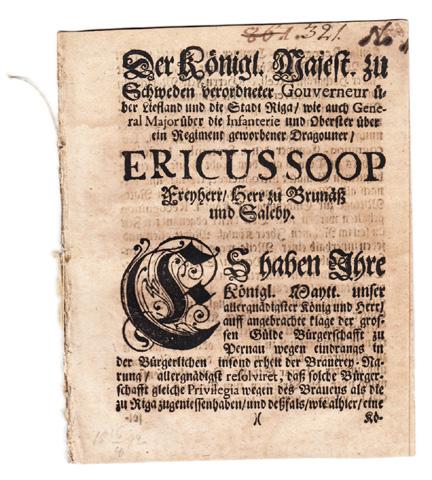 321. No 1
Der Königl. Majest. zu
Schweden verordneter Gouverneur ü-
ber Liefland und die Stadt Riga / wie auch Gene-
ral Major über die Infanterie und Oberster über
ein Regiment geworbener Dragouner /
ERICUS SOOP
Freyherr / Herr zu Brunäß
und Saleby.
ES haben Ihre
Königl. Maytt. unser
allergnädigster König und Herr /
auff angebrachte klage der gros-
sen Gülde Bürgerschafft zu
Pernau wegen eindrangs in
der Bürgerlichen insonderheit der Brauerey-Na-
rung / allergnädigst resolviret / daß solche Bürger-
schafft gleiche Privilegia wegen des Brauens als die
zu Riga zugeniessen haben / und deßfals / wie alhier / eine
)( Kö-